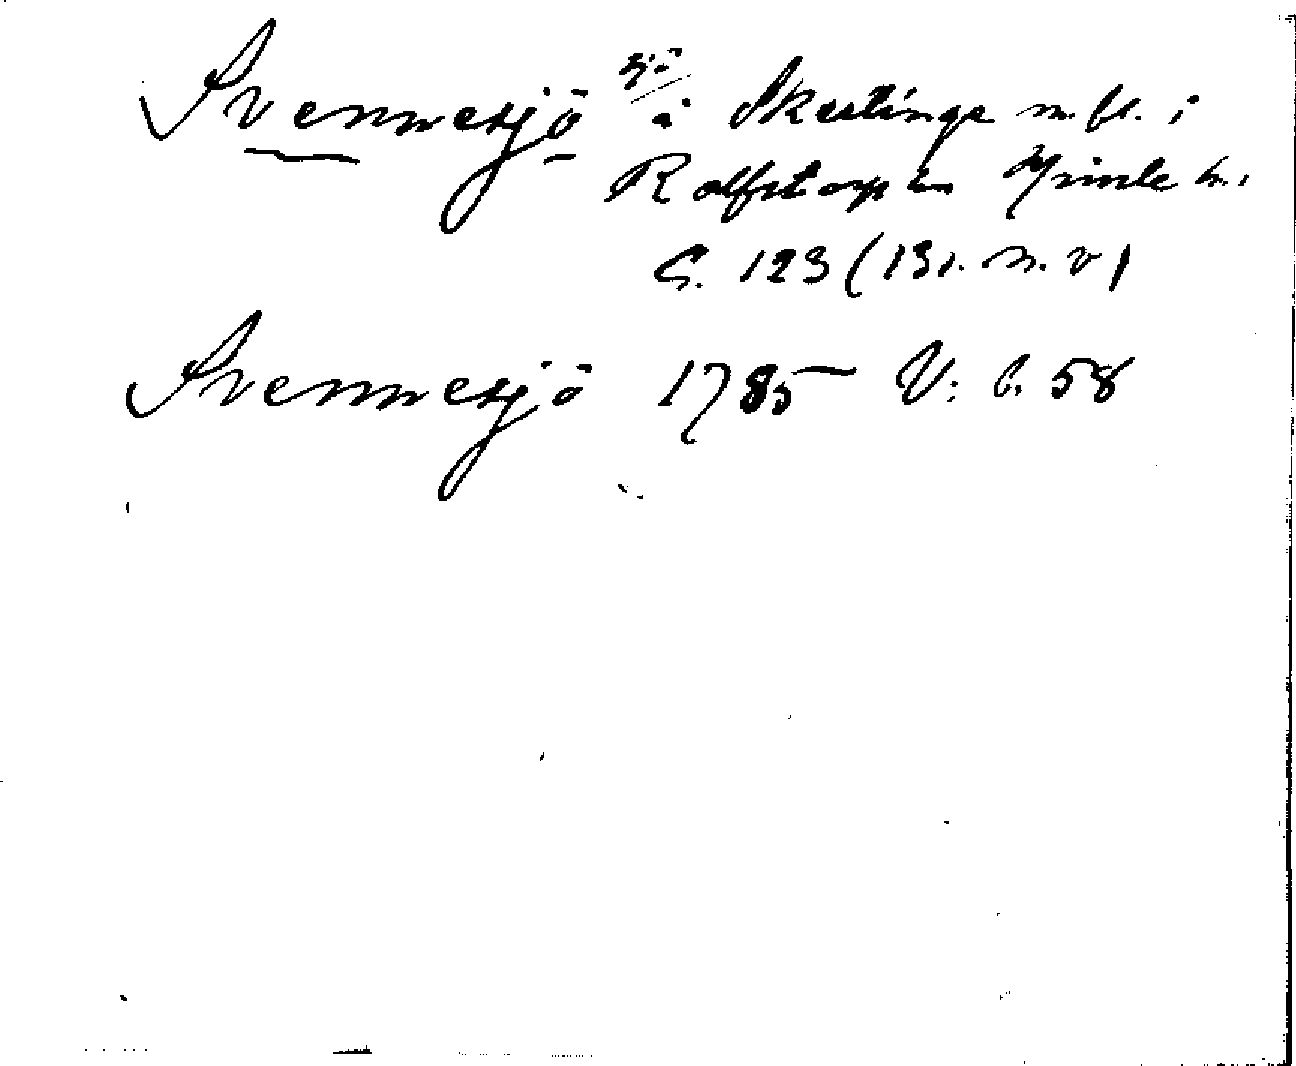 Svennesjö sjö å Skällinge m. fl. i
Rolfstorp sn Himle h.
G. 123 (131. n. v)
Svennesjö 1785 V: b. 58